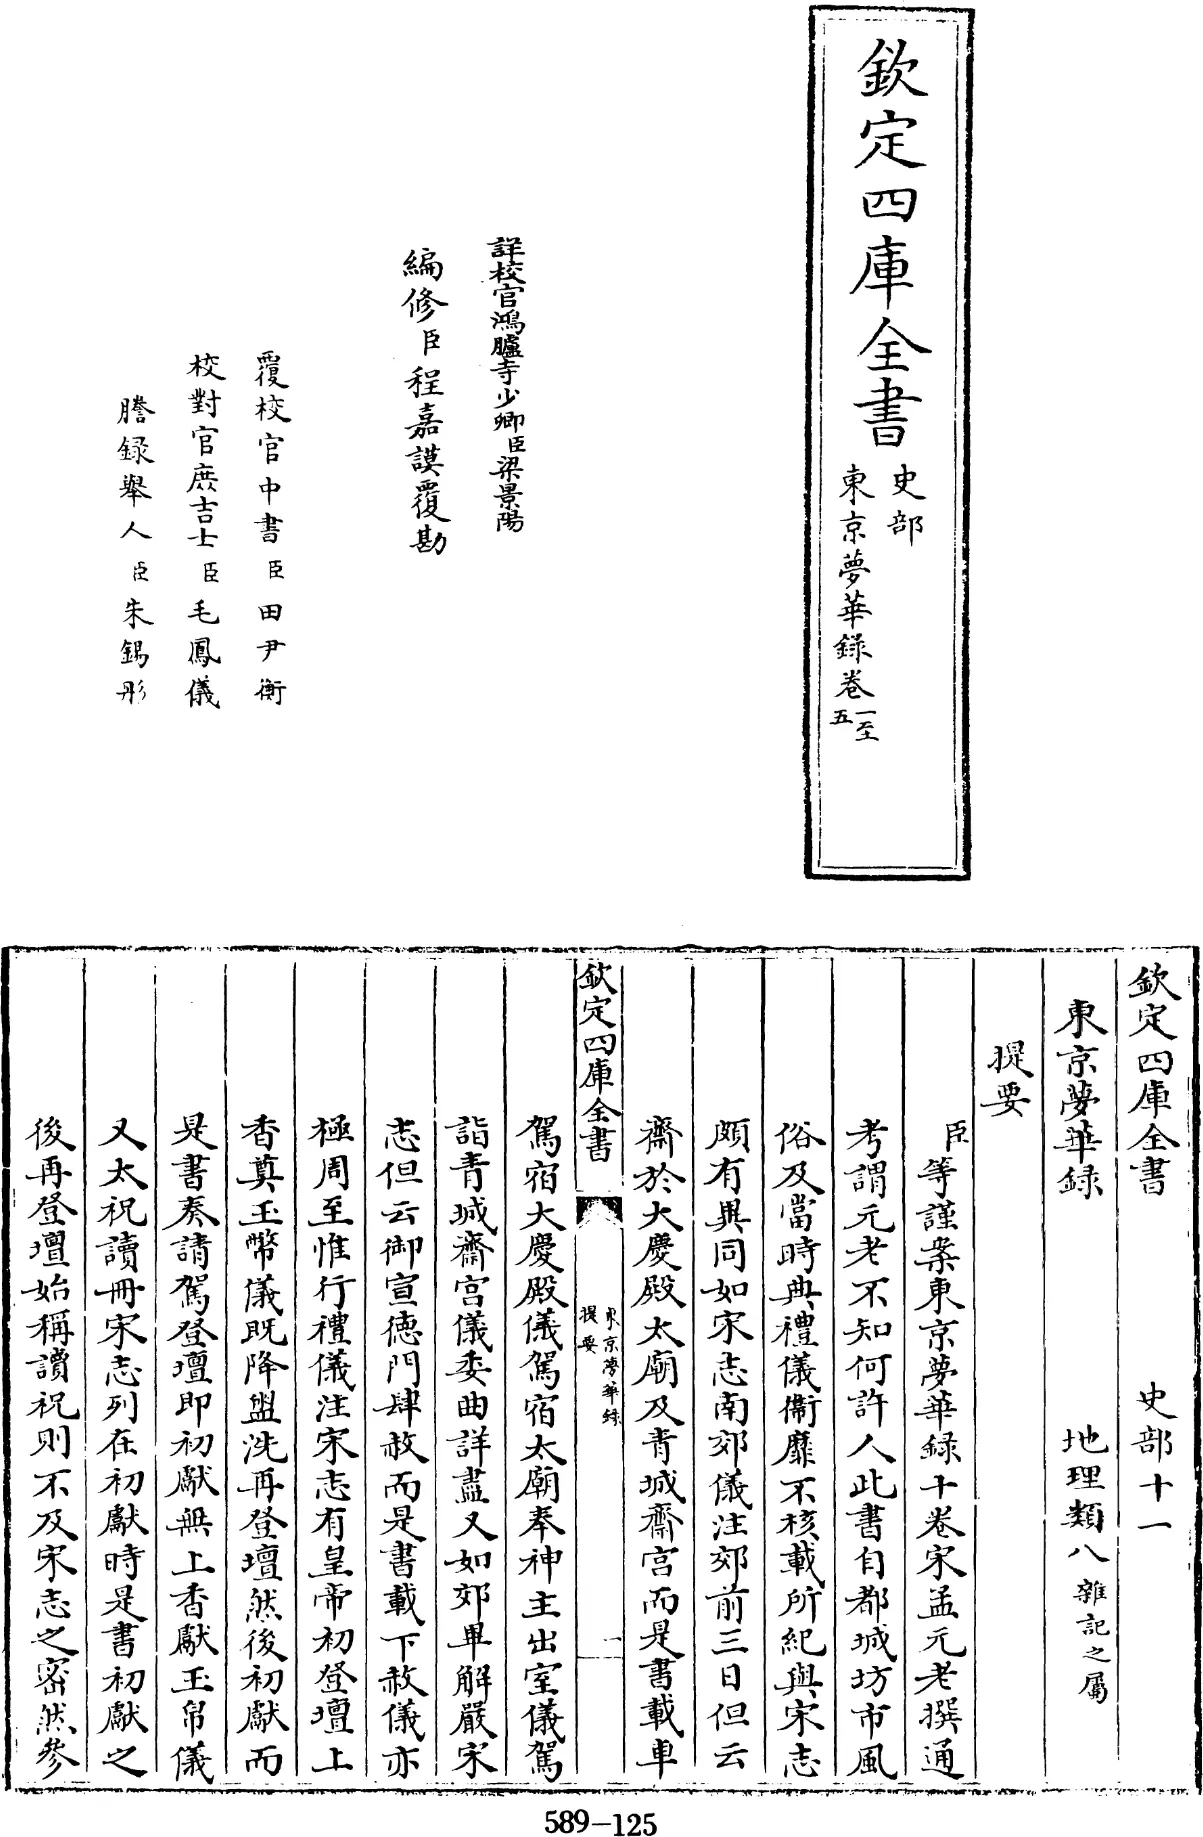 欽定四庫全書
史部
東京夢華錄卷一至五
詳校官鴻臚寺少卿臣梁景陽
編修臣程嘉謨覆勘
覆校官中書臣田尹衡
校對官庶吉士臣毛鳳儀
謄録舉人臣朱錫彤
欽定四庫全書 史部十一
東京夢華録 地理類八雜記之屬
提要
臣等謹案東京夢華録十卷宋孟元老撰通
考謂元老不知何許人此書自都城坊市風
俗及當時典禮儀衛靡不核載所紀與宋志
頗有異同如宋志南郊儀注郊前三日但云
齋於大慶殿太廟及青城齋宫而是書載車
欽定四庫全書
東京夢華録
提要
一
駕宿大慶殿儀駕宿太廟奉神主出室儀駕
詣青城齋宫儀委曲詳盡又如郊畢解嚴宋
志但云御宣徳門肆赦而是書載下赦儀亦
極周至惟行禮儀注宋志有皇帝初登壇上
香奠玉幣儀既降盥洗再登壇然後初獻而
是書奏請駕登壇即初獻無上香獻玉帛儀
又太祝讀冊宋志列在初獻時是書初獻之
後再登壇始稱讀祝則不及宋志之密然參
589-125